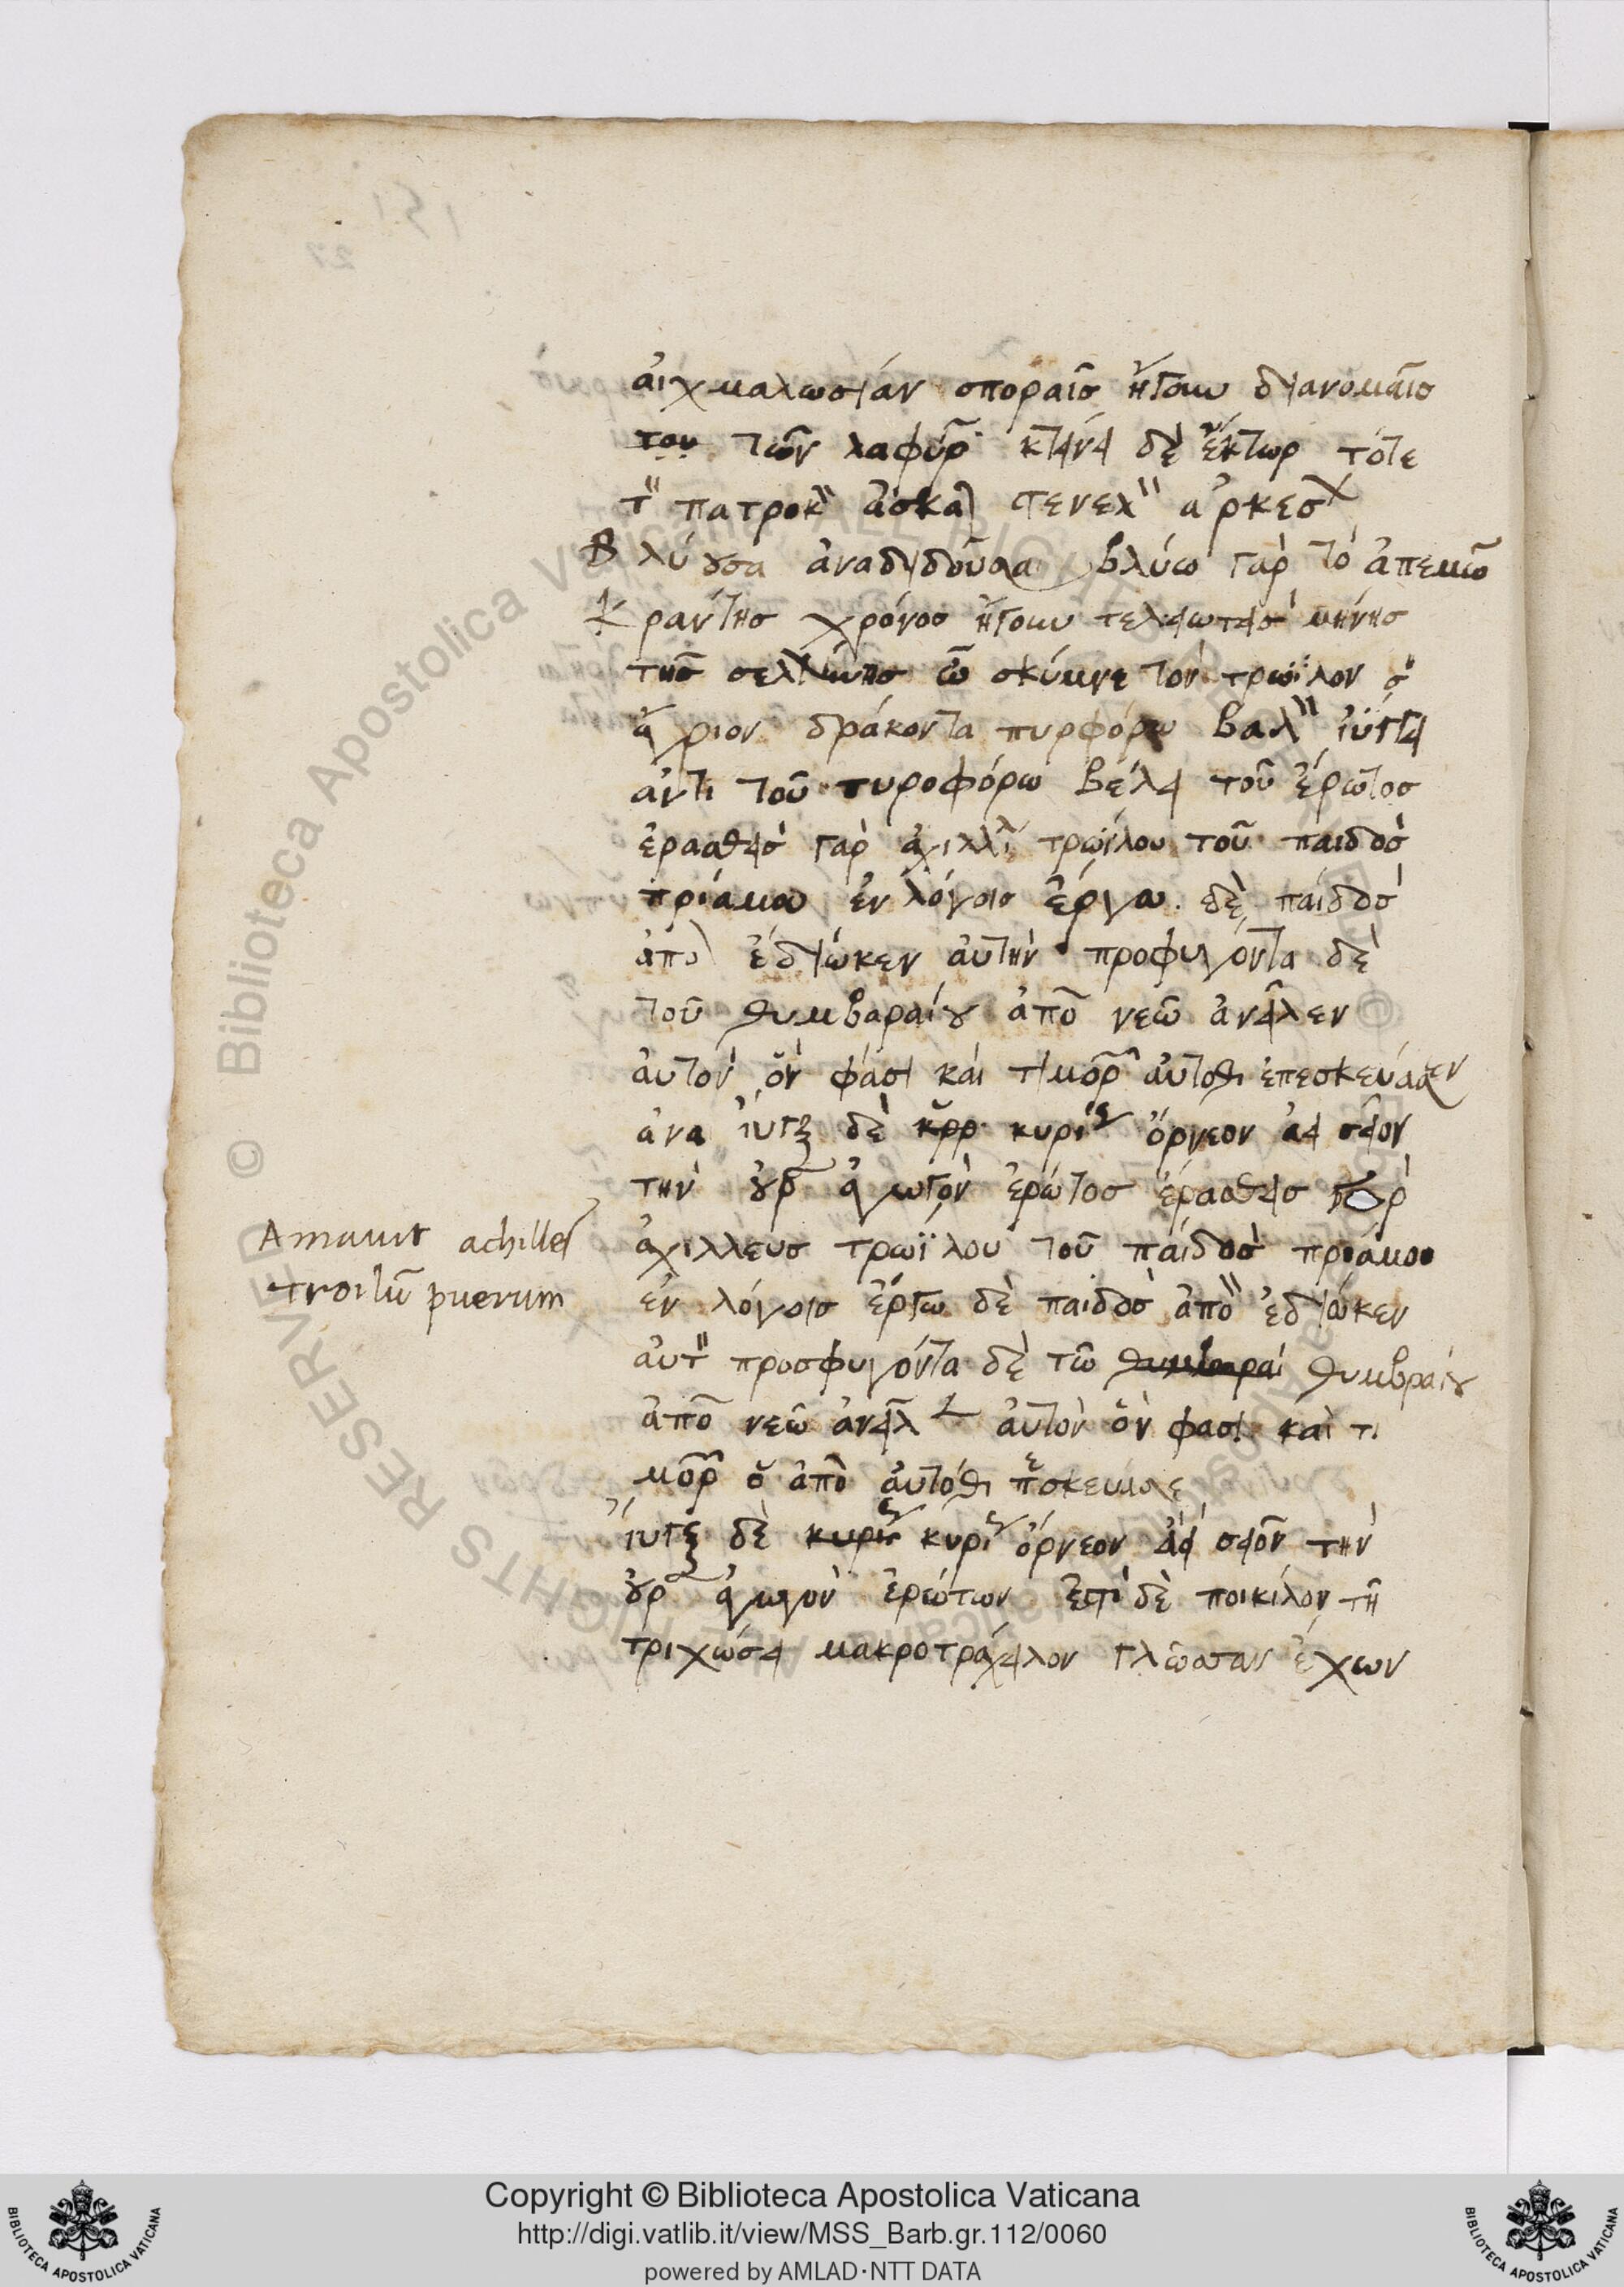 αἰχμαλωσίαν σποραῖς ἤγουν διανομαῖς
του τῶν λαφύρ κτείνει δὲ ἕκτωρ τότε
τ῾ πατροκ῾ ἀσκα στενελ῾ ἀρκεσ
Βλύουσα ἀναδιδοῦσα βλύω γὰρ τὸ ἀπεμῶ
Κραντὴσ χρόνοσ ἤγουν τελειωτὴσ μήνησ
τῆσ σελήνησ ὦ σκύμνε τὸν τρωΐλον
ἄγριον δράκοντα πυρφόρω βαλ ἴϋγγι
ἀντὶ τοῦ πυροφόρω βέλει τοῦ ἔρωτοσ
ἐρασθεὶσ γὰρ ἀχιλλ τρωΐλου τοῦ παιδὸσ
πριάμου ἐν λόγοισ ἔργω δὲ παίδοσ
ἀπο ἐδίωκεν αὐτὴν προφυγόντα δὲ
τοῦ θυμβαραίου ἀπο νεῶ ἀνεῖλεν
αὐτὸν ὅν φάσι και τιμορ αὐτόθι ἐπεσκεύασεν
ἀνα ἴυγξ δὲ κυρί ὄρνεον ἀεὶ σεῖον
τὴν οὐρ ἀγωγὸν ἔρωτοσ ἐρασθεὶσ γὰρ
ἀχιλλευσ τρωϊλου τοῦ παίδοσ πριάμου
ἐν λόγοισ ἔργω δὲ παιδὸσ ἀπο ἐδίωκεν
αυτ προσφυγόντα δὲ τῶ θυμβαραί θυμβραίου
ἀπο νεῶ ἀνεῖλ αὐτὸν ὅν φασι και τι
μορ ὁ ἀπο αὐτόθι ἐπεσκεύασε
ἴυγξ δὲ κυρί κυρί ὄρνεον ἀεὶ σεῖον τὴν
οὐρ ἀγωγὸν ἐρώτων ἐστὶ δὲ ποικίλον τῆ
τριχώσει μακροτράχηλον γλῶσσαν ἔχων
Amauit achilles
Troilũ puerum
Copyright © Biblioteca Apostolica Vaticana
http://digi.vatlib.it/view/MSS_Barb.gr.112/0060
powered by AMLAD·NTT DATA